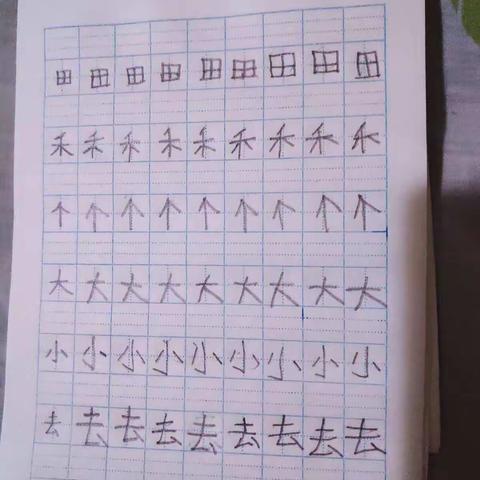 田田田田田田田田田
禾禾禾禾禾禾禾禾禾
个个个个个个个个个
大大大大大大大大大
小小小小小小小小小
去去去去去去去去去